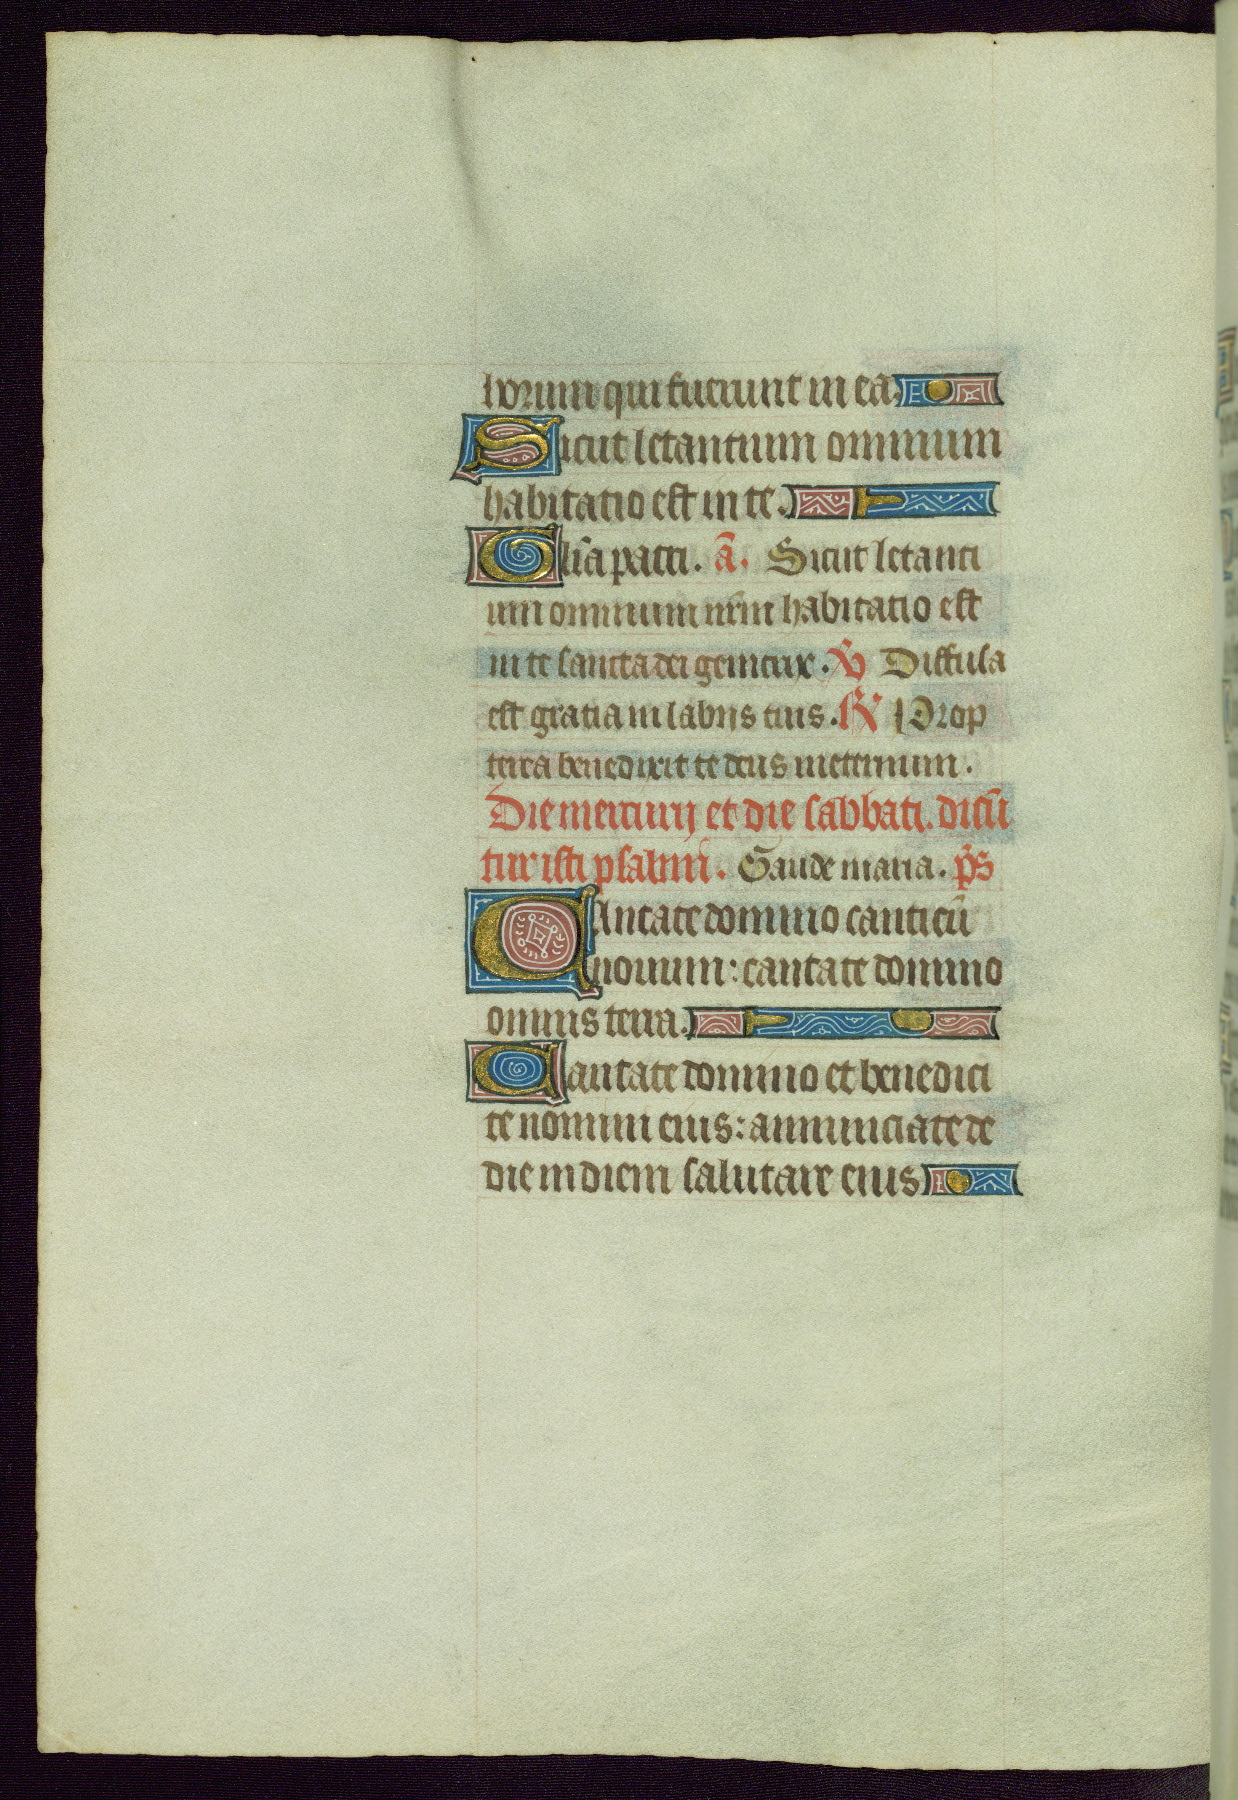 horum qui fuerunt in ea.
Sicut letantium omnium
habitatio est in te.
Gl'ia patri. ā. Sicut letanti
um omnium nr̄m habitatio est
in te sancta dei genitrix. V̄ Diffusa
est gratia in labijs tuis. R̄ Prop
terea benedixit te deus ineternum.
Die mercurij et die sabbati. dicū
tur isti psalmi. Gaude maria. p̄s
CAntate domino canticū
nouum: cantate domino
omnis terra.
Cantate domino et benedici
te nomini eius: annunciate de
die in diem salutare eius